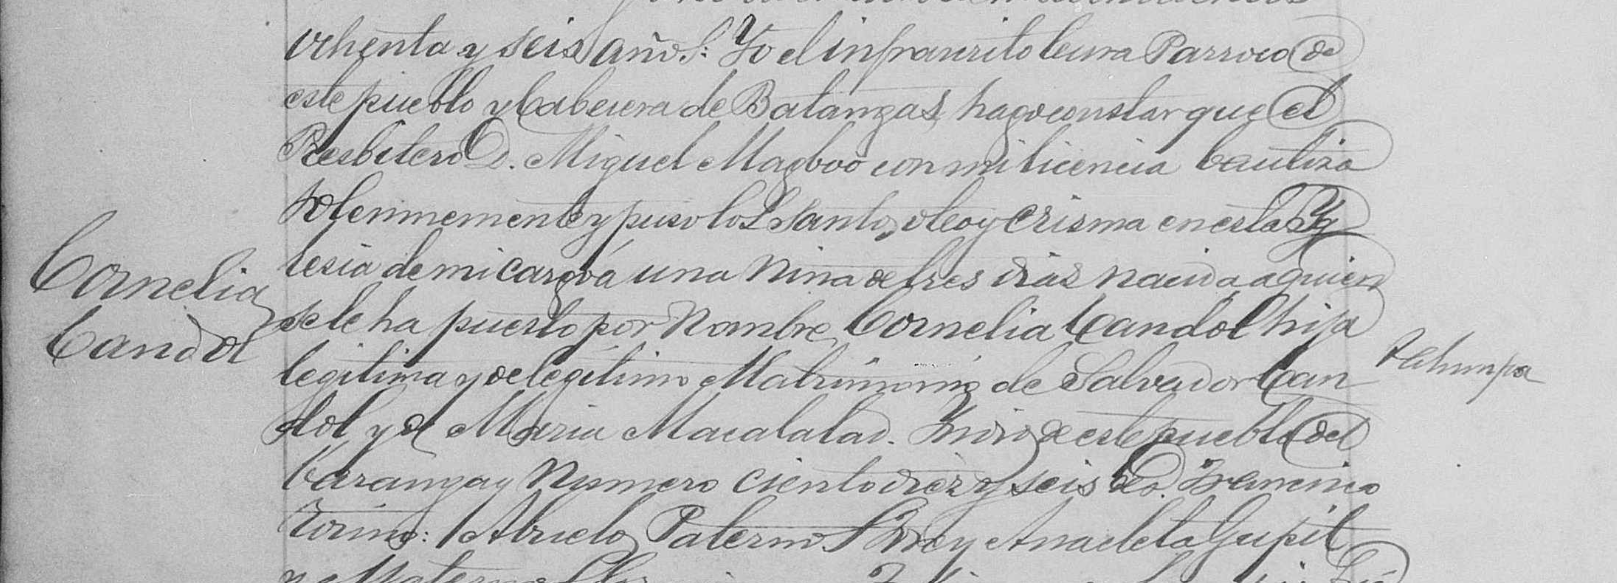 ochenta y seis años: Yo el infrascrito Cura Parroco de
este pueblo y Cabecera de Batangas, hago constar que el
Presbitero D. Miguel Magboo con mi licencia bautiza
solemnemente y puso los Santos oleo y Crisma en esta Yg
Cornelia
Candol
lesia de mi cargo á una Niña de tres dias nacida a quien
se le ha puesto por Nombre Cornelia Candol hija
legitima y de legitimo Matrimonio de Salvador Can
dol y de Maria Macalalad. Indios de este pueblo del
Barangay Numero ciento diez y seis de D. Francisco
Abuelos Paternos y Anacleta Gupit